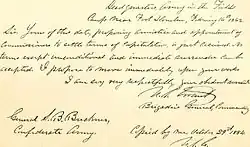 Head Quarters Army in the Field
Camp Near Fort Donelson February 16th 1862
Sir Yours of this date, proposing armistice and appointment of
Commissioners to settle terms of Capitulation, is just received. No
terms except unconditional and immediate surrender can be
accepted. I propose to move immediately upon your works
I am Sir very respectfully your obedient servant
U. S. Grant
Brigadier General Commanding
General S. B. Buckner,
Confederate Army.
Copied by me October 29th 1884
U. S. G.